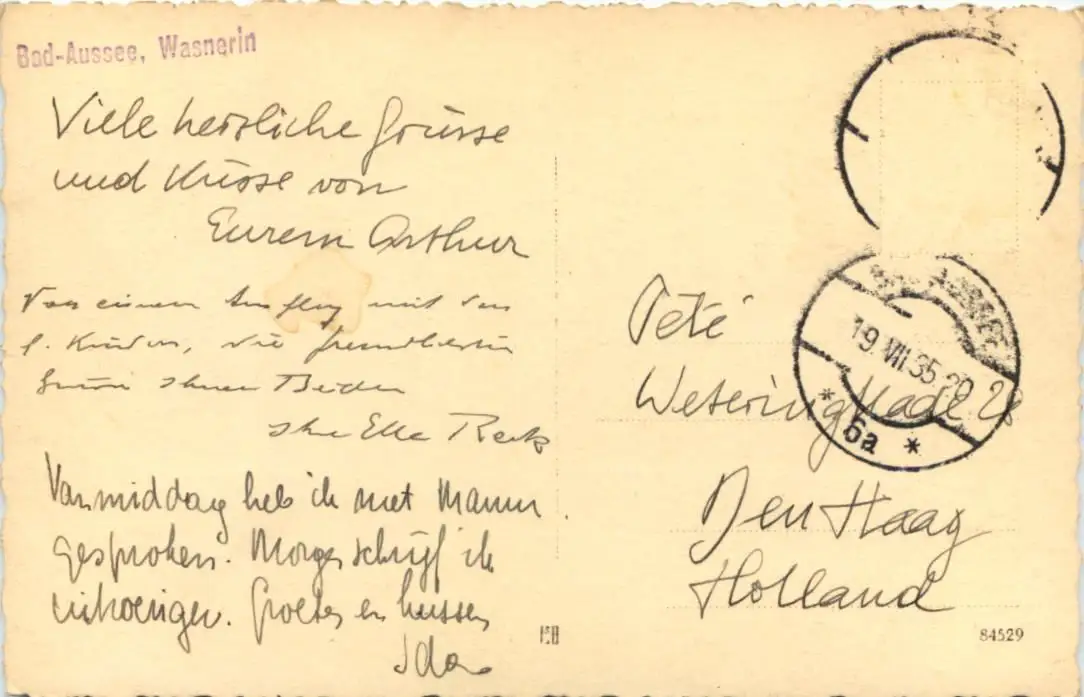 Bad-Aussee, Wasnerin
Viele herzliche Grüsse
und Küsse von
Eurem Arthur
Von einem Ausflug mit den
l. Kindern, die freundlichsten
Grüsse Ihnen Beiden
Ihre Ella
Vanmiddag heb ik met Mamm
gesproken. Morgen schrijf ik
uitvoeriger. Groeten en kussen
Ida
19.VII.35.20
* 6a *
Peté
28
Den Haag
Holland
84529